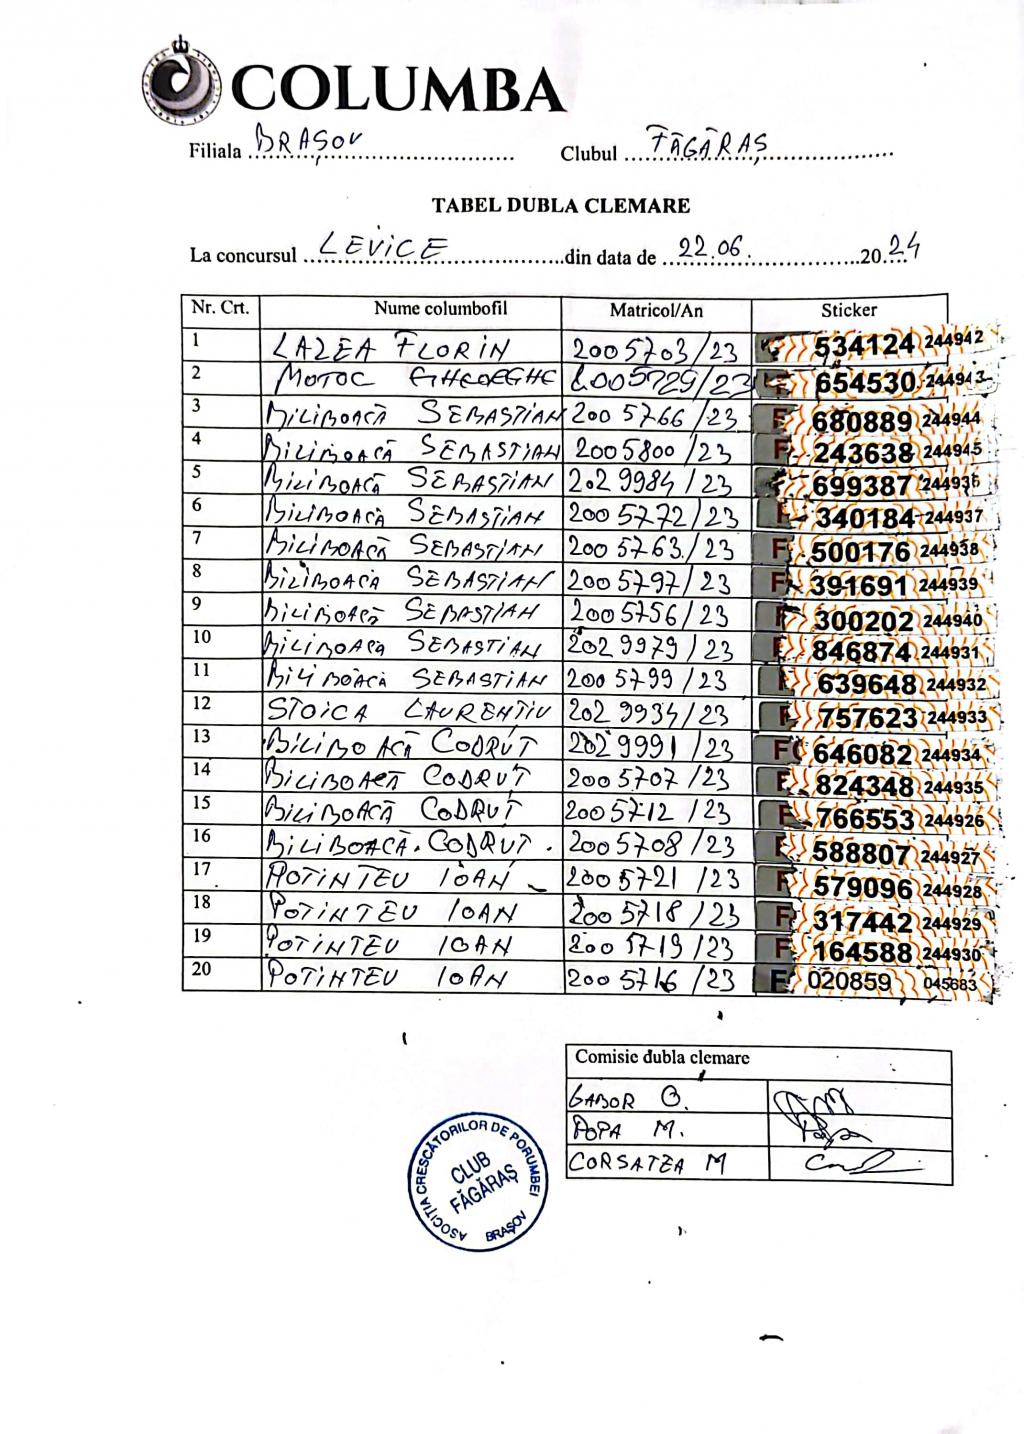 COLUMBA
Filiala BRAȘOV Clubul FĂGĂRAȘ
TABEL DUBLA CLEMARE
La concursul LEVICE din data de 22.06. 2024
Nr. Crt. Nume columbofil Matricol/An Sticker
1 LAZEA FLORIN 2005703/23 534124 244942
2 MOTOC GHEORGHE 2005729/23 654530 244943
3 BILIBOACĂ SEBASTIAN 2005766/23 F 680889 244944
4 BILIBOACĂ SEBASTIAN 2005800/23 F 243638 244945
5 BILIBOACĂ SEBASTIAN 2029984/23 699387 244936
6 BILIBOACĂ SEBASTIAN 2005772/23 340184 244937
7 BILIBOACĂ SEBASTIAN 2005763/23 F 500176 244938
8 BILIBOACĂ SEBASTIAN 2005797/23 F 391691 244939
9 BILIBOACĂ SEBASTIAN 2005756/23 F 300202 244940
10 BILIBOACĂ SEBASTIAN 2029979/23 846874 244931
11 BILIBOACĂ SEBASTIAN 2005799/23 639648 244932
12 STOICA LAURENȚIU 2029934/23 F 757623 244933
13 BILIBOACĂ CODRUȚ 2029991/23 F 646082 244934
14 BILIBOACĂ CODRUȚ 2005707/23 F 824348 244935
15 BILIBOACĂ CODRUȚ 2005712/23 F 766553 244926
16 BILIBOACĂ CODRUȚ 2005708/23 F 588807 244927
17 POTINTEU IOAN 2005721/23 F 579096 244928
18 POTINTEU IOAN 2005718/23 F 317442 244929
19 POTINTEU IOAN 2005719/23 F 164588 244930
20 POTINTEU IOAN 2005716/23 F 020859 045683
Comisie dubla clemare
GABOR O.
POPA M. Popa
CORSATEA M
ASOCIȚIA CRESCĂTORILOR DE PORUMBEI
CLUB
FĂGĂRAȘ
BRAȘOV